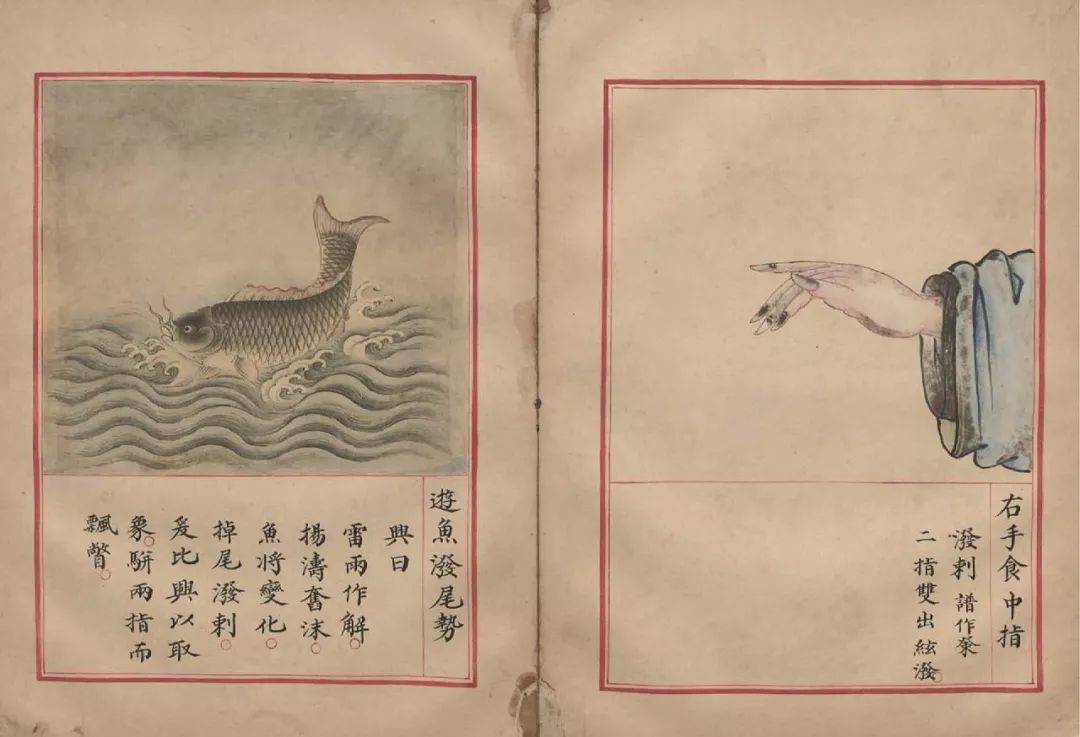 右手食中指
潑剌 譜作
二指雙出絃潑。
遊魚潑尾勢
興曰
雷雨作解。
揚濤奮沫。
魚將變化。
掉尾潑剌。
爰比興以取
象。駢兩指而
飄瞥。